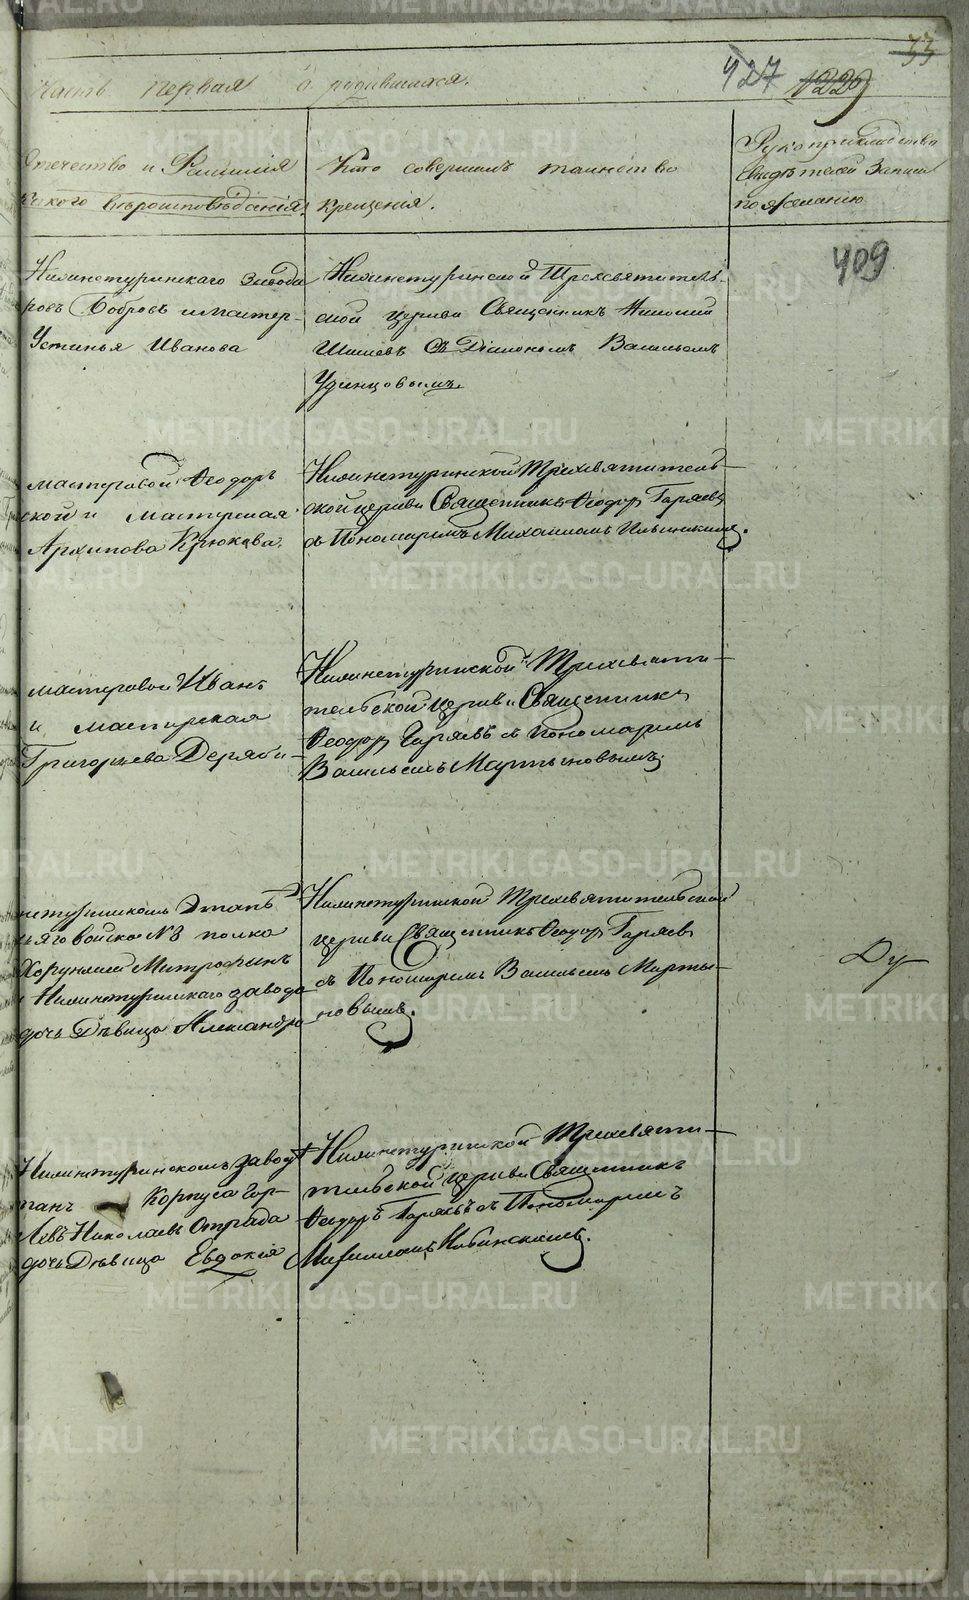 33
Часть первая о родившихся.
427 1229
Отечество и Фамилия
какого вѣроисповѣданія.
Кто совершалъ таинство
Крещенія.
Рукоприкладство
свидѣтелей записи
по желанію
409
Нижнетуринскаго завода
Бобровъ и мастер-
Устинья Иванова
Нижнетуринской Трехсвятитель-
ской церкви Священникъ
Шишевъ съ Діакономъ Васильемъ
Удинцовымъ.
мастеровой Ѳеодоръ
ской и мастерская
Архипова Крюкова.
Нижнетуринской Трехсвятитель-
ской церкви Священникъ Ѳеодоръ Гаряевъ
съ Пономаремъ Михаиломъ
мастеровой Иванъ
и мастерская
Григорьева Деряби-
Нижнетуринской Трехсвяти-
тельской церкви Священникъ
Ѳеодоръ Гаряевъ съ пономаремъ
Васильемъ Мартыновымъ
нетуринскомъ Этапѣ
войска №3 полка
Хорунжій Митрофанъ
Нижнетуринскаго завода
дочь Дѣвица Александра
Нижнетуринской Трехсвятительской
церкви Священникъ Ѳеодоръ Гаряевъ
съ Пономаремъ Васильемъ Марты-
новымъ.
Нижнетуринскомъ заводѣ
Корпуса Гор-
Левъ Николаевъ Отрада
дочь Дѣвица Евдокія
Нижнетуринской Трехсвяти-
тельской церкви Священникъ
Ѳеодоръ Гаряевъ съ Пономаремъ
Михаиломъ
METRIKI.GASO-URAL.RU